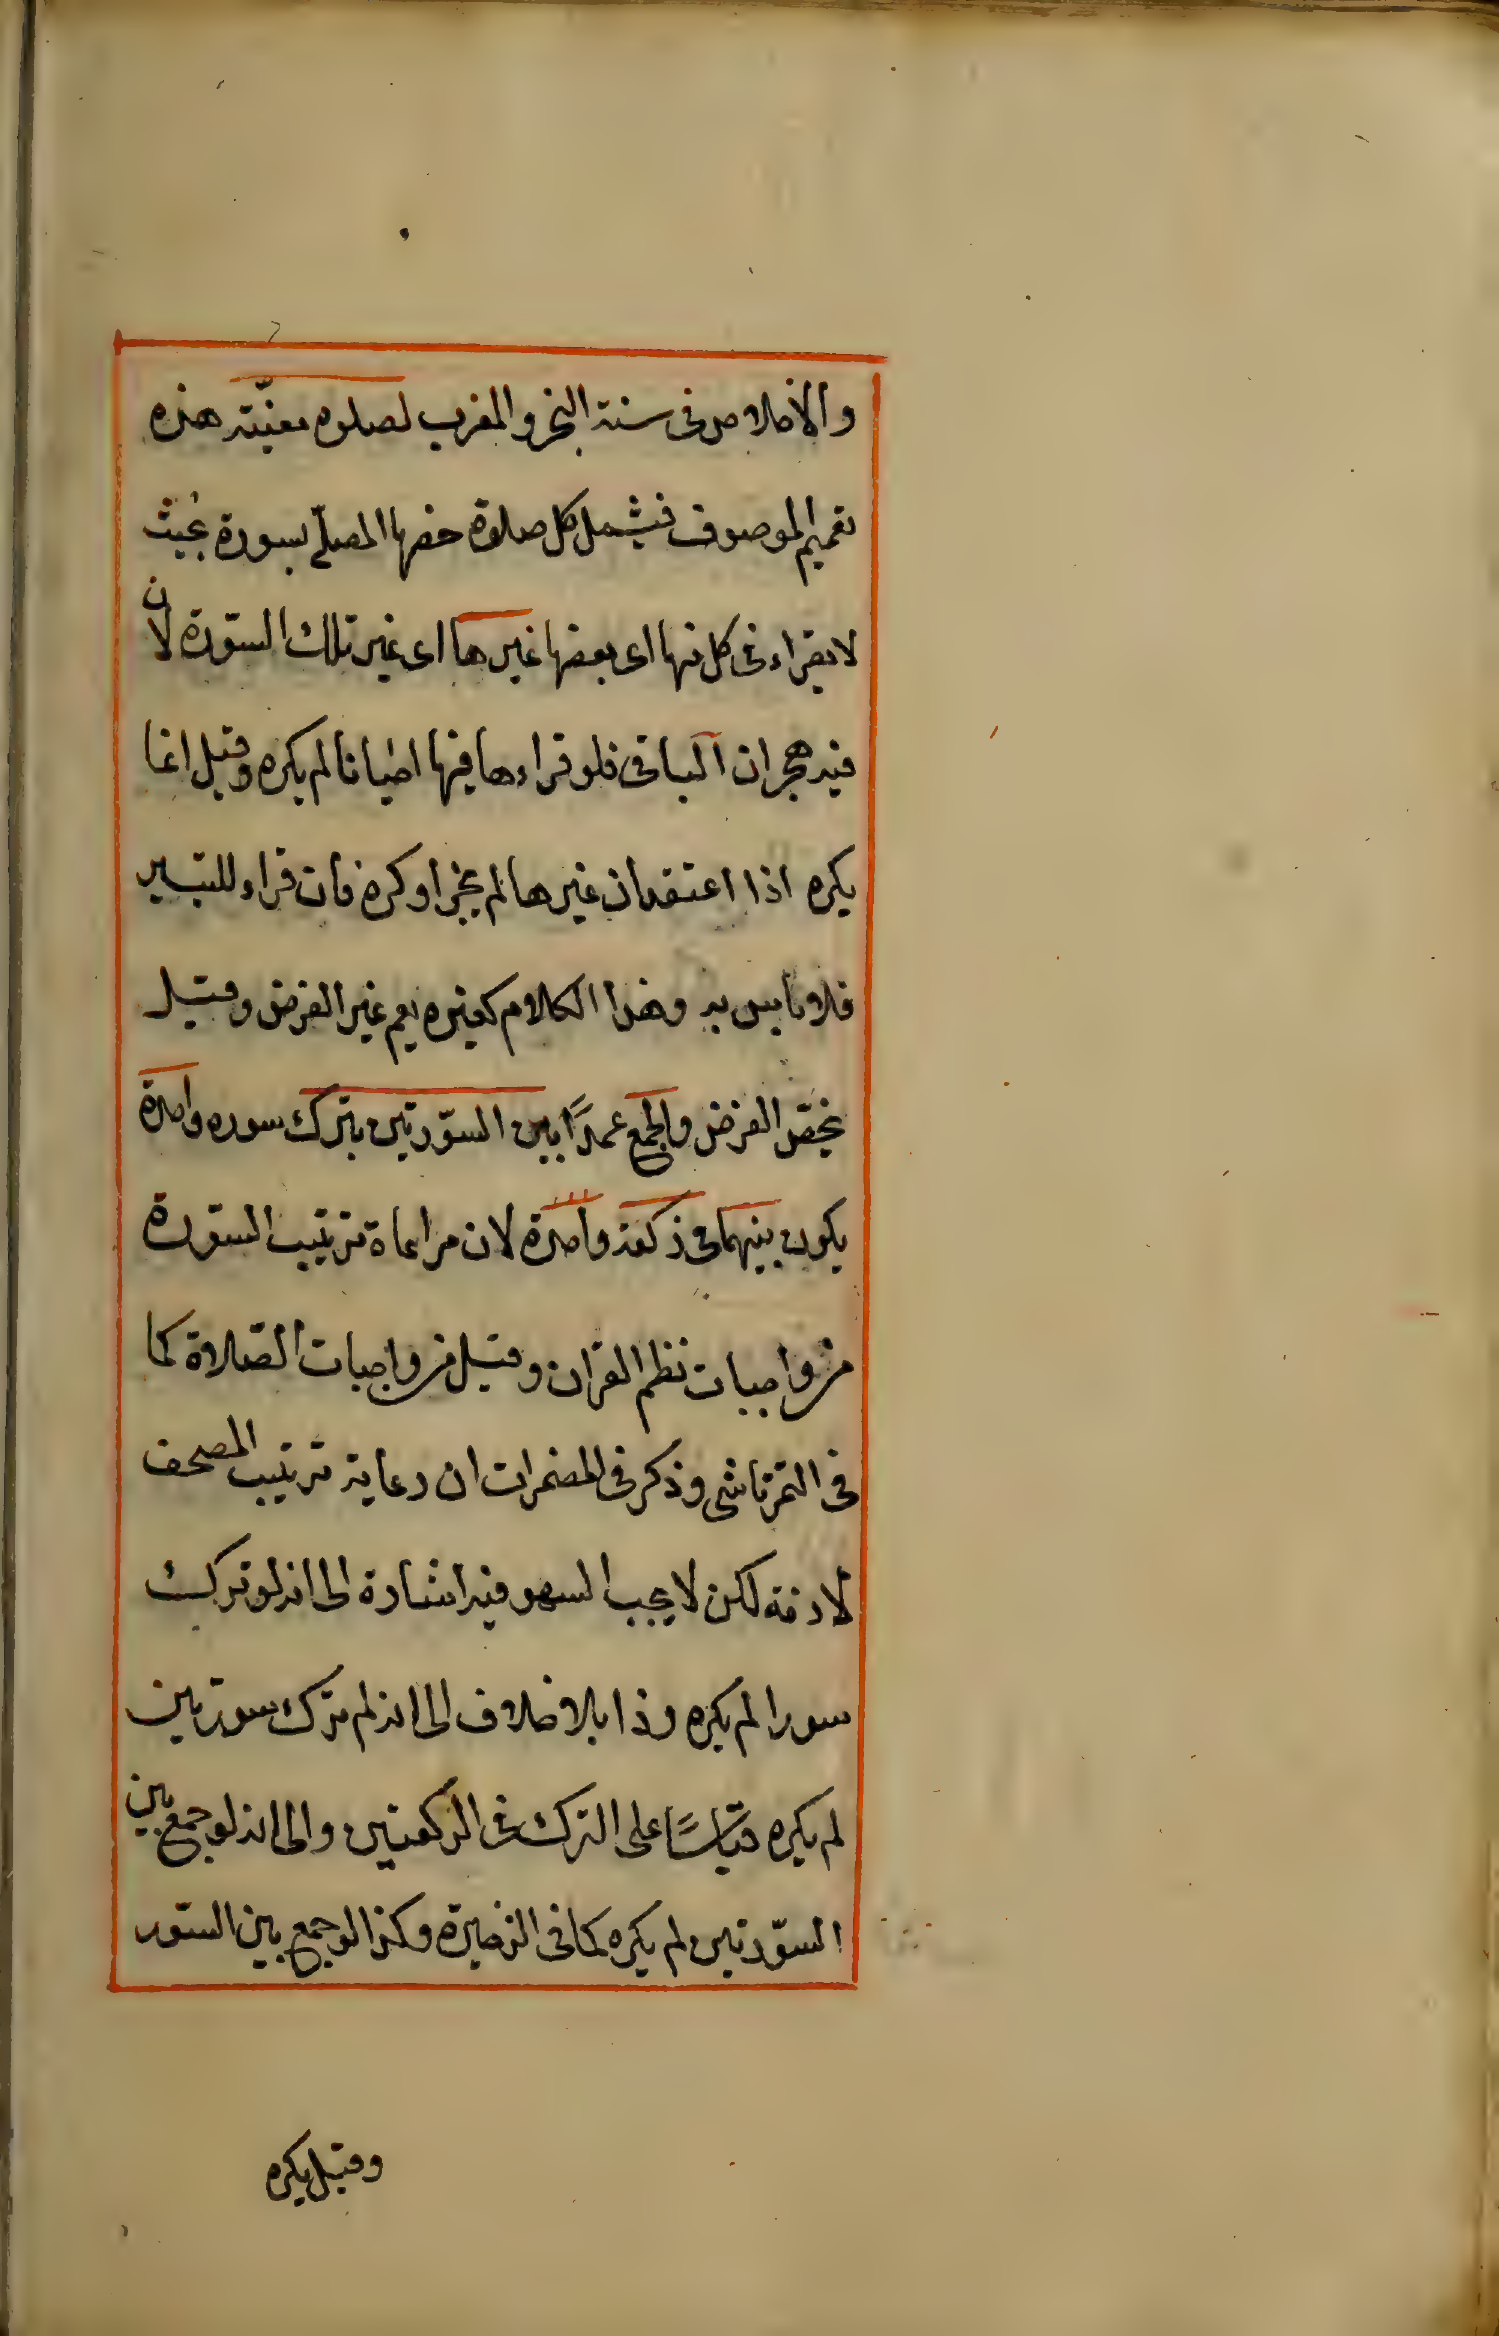 والاخلاص فى سنة الفجر والمغرب لصلوه معيّنة هذه
تعميم الموصوف فيشمل كل صلاوة خصها المصلّى بسورة بحيث
لا يقراء فى كل منها اى بعضها غيرها اى غير تلك السّورة لان
فيه هجران الباقى فلو قراءها فيها احيانا لم يكره وقيل انما
يكره اذا اعتقد ان غيرها لم يجز او كره فان قراء للتيسير
فلا باس به وهذا الكلام كغيره يعم غير الفرض وقيل
يخص الفرض والجمع عمدًا بين السّورتين بترك سوره واحدة
يكون بينهما فى ركعة واحدة لان مراعاة ترتيب السّورة
من واجبات نظم القران وقيل من واجبات الصّلاوة كما
فى التمرتاشى وذكر فى المضمرات ان رعاية ترتيب المصحف
لازمة لكن لا يجب السهو فيه اشارة الى انه لو ترك
سورا لم يكره وذا بلا خلاف الى انه لم ترك سورتين
لم يكره قيّاسًا على الترك فى الركعتين والى انه لو جمع بين
السّورتين لم يكره كما فى الذخيرة وكذا لو جمع بين السّور
وقيل يكره